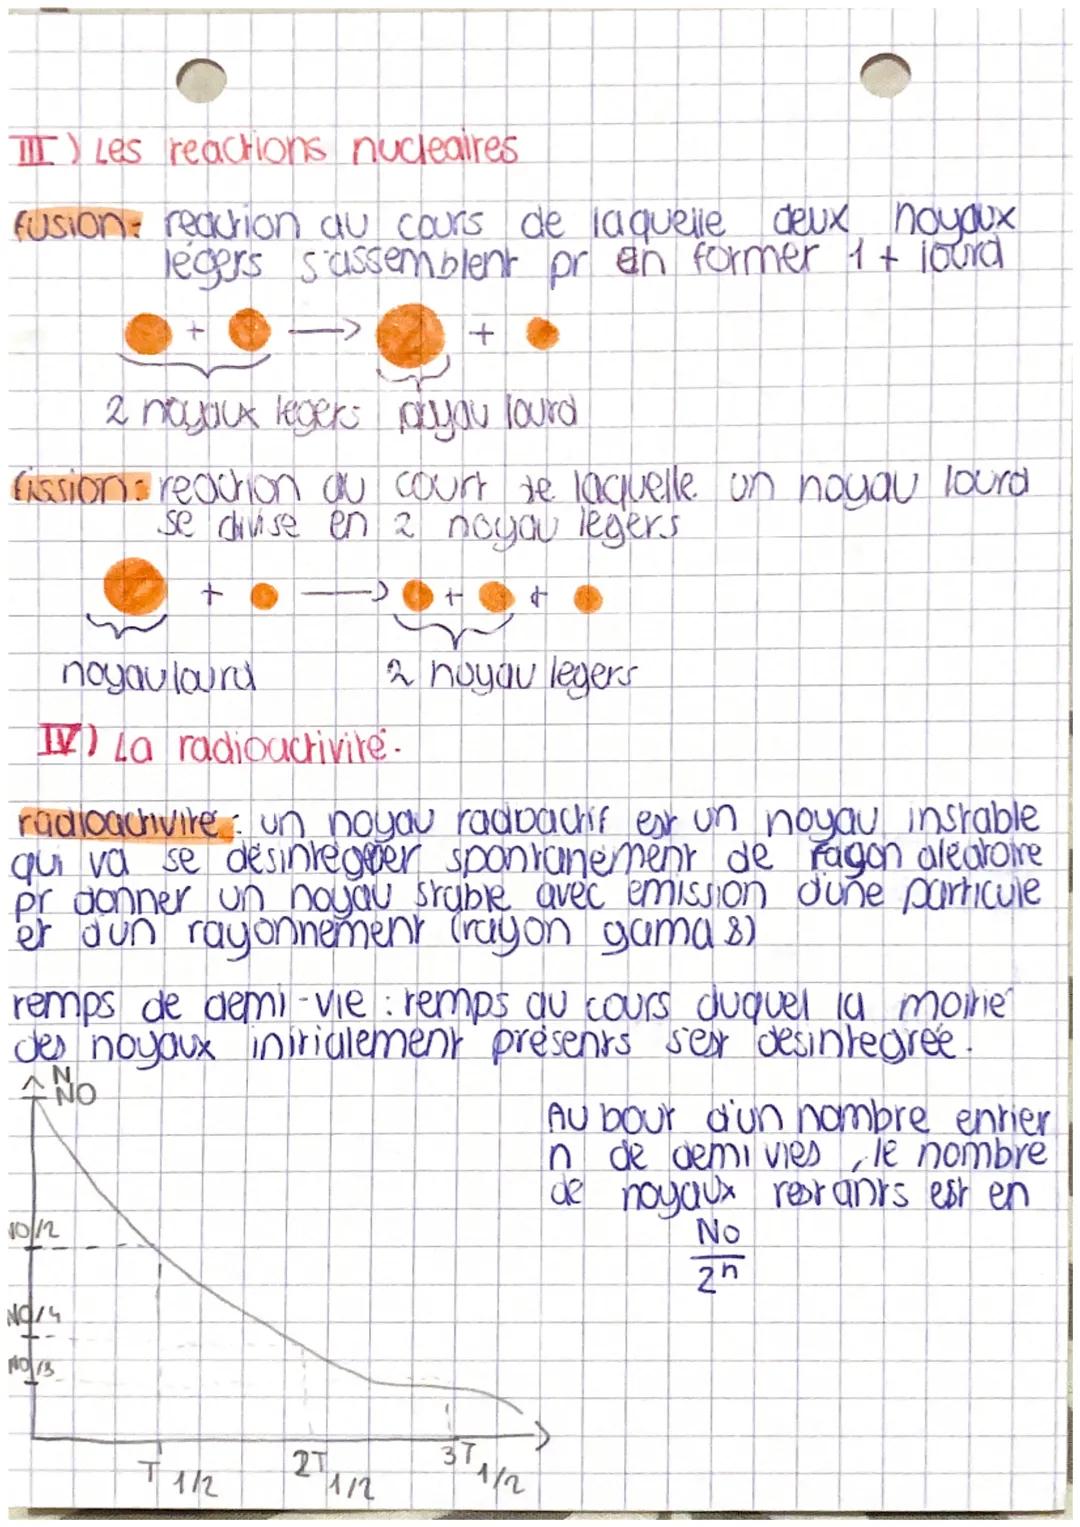 III) Les reactions nucleaires
fusion: reaction au cours de laquelle deux noyaux
légers s'assemblent pr en former 1 + lourd
+ → +
2 noyaux legers noyau lourd
fission: reaction au court de laquelle un noyau lourd
se divise en 2 noyau légers
+ → + +
noyau lourd 2 noyau legers
IV) La radioactivité.
radioactivité: un noyau radioactif est un noyau instable
qui va se désintégrer spontanément de façon aléatoire
pr donner un noyau stable avec émission d'une particule
et d'un rayonnement (rayon gama 8)
temps de demi-vie : temps au cours duquel la moitié
des noyaux initialement présents s'est désintegrée.
N
N0
Au bout d'un nombre entier
n de demi vies, le nombre
de noyaux restants est en
No
2^n
N0/2
N0/4
N0/3
T 1/2 2T 1/2 3T 1/2